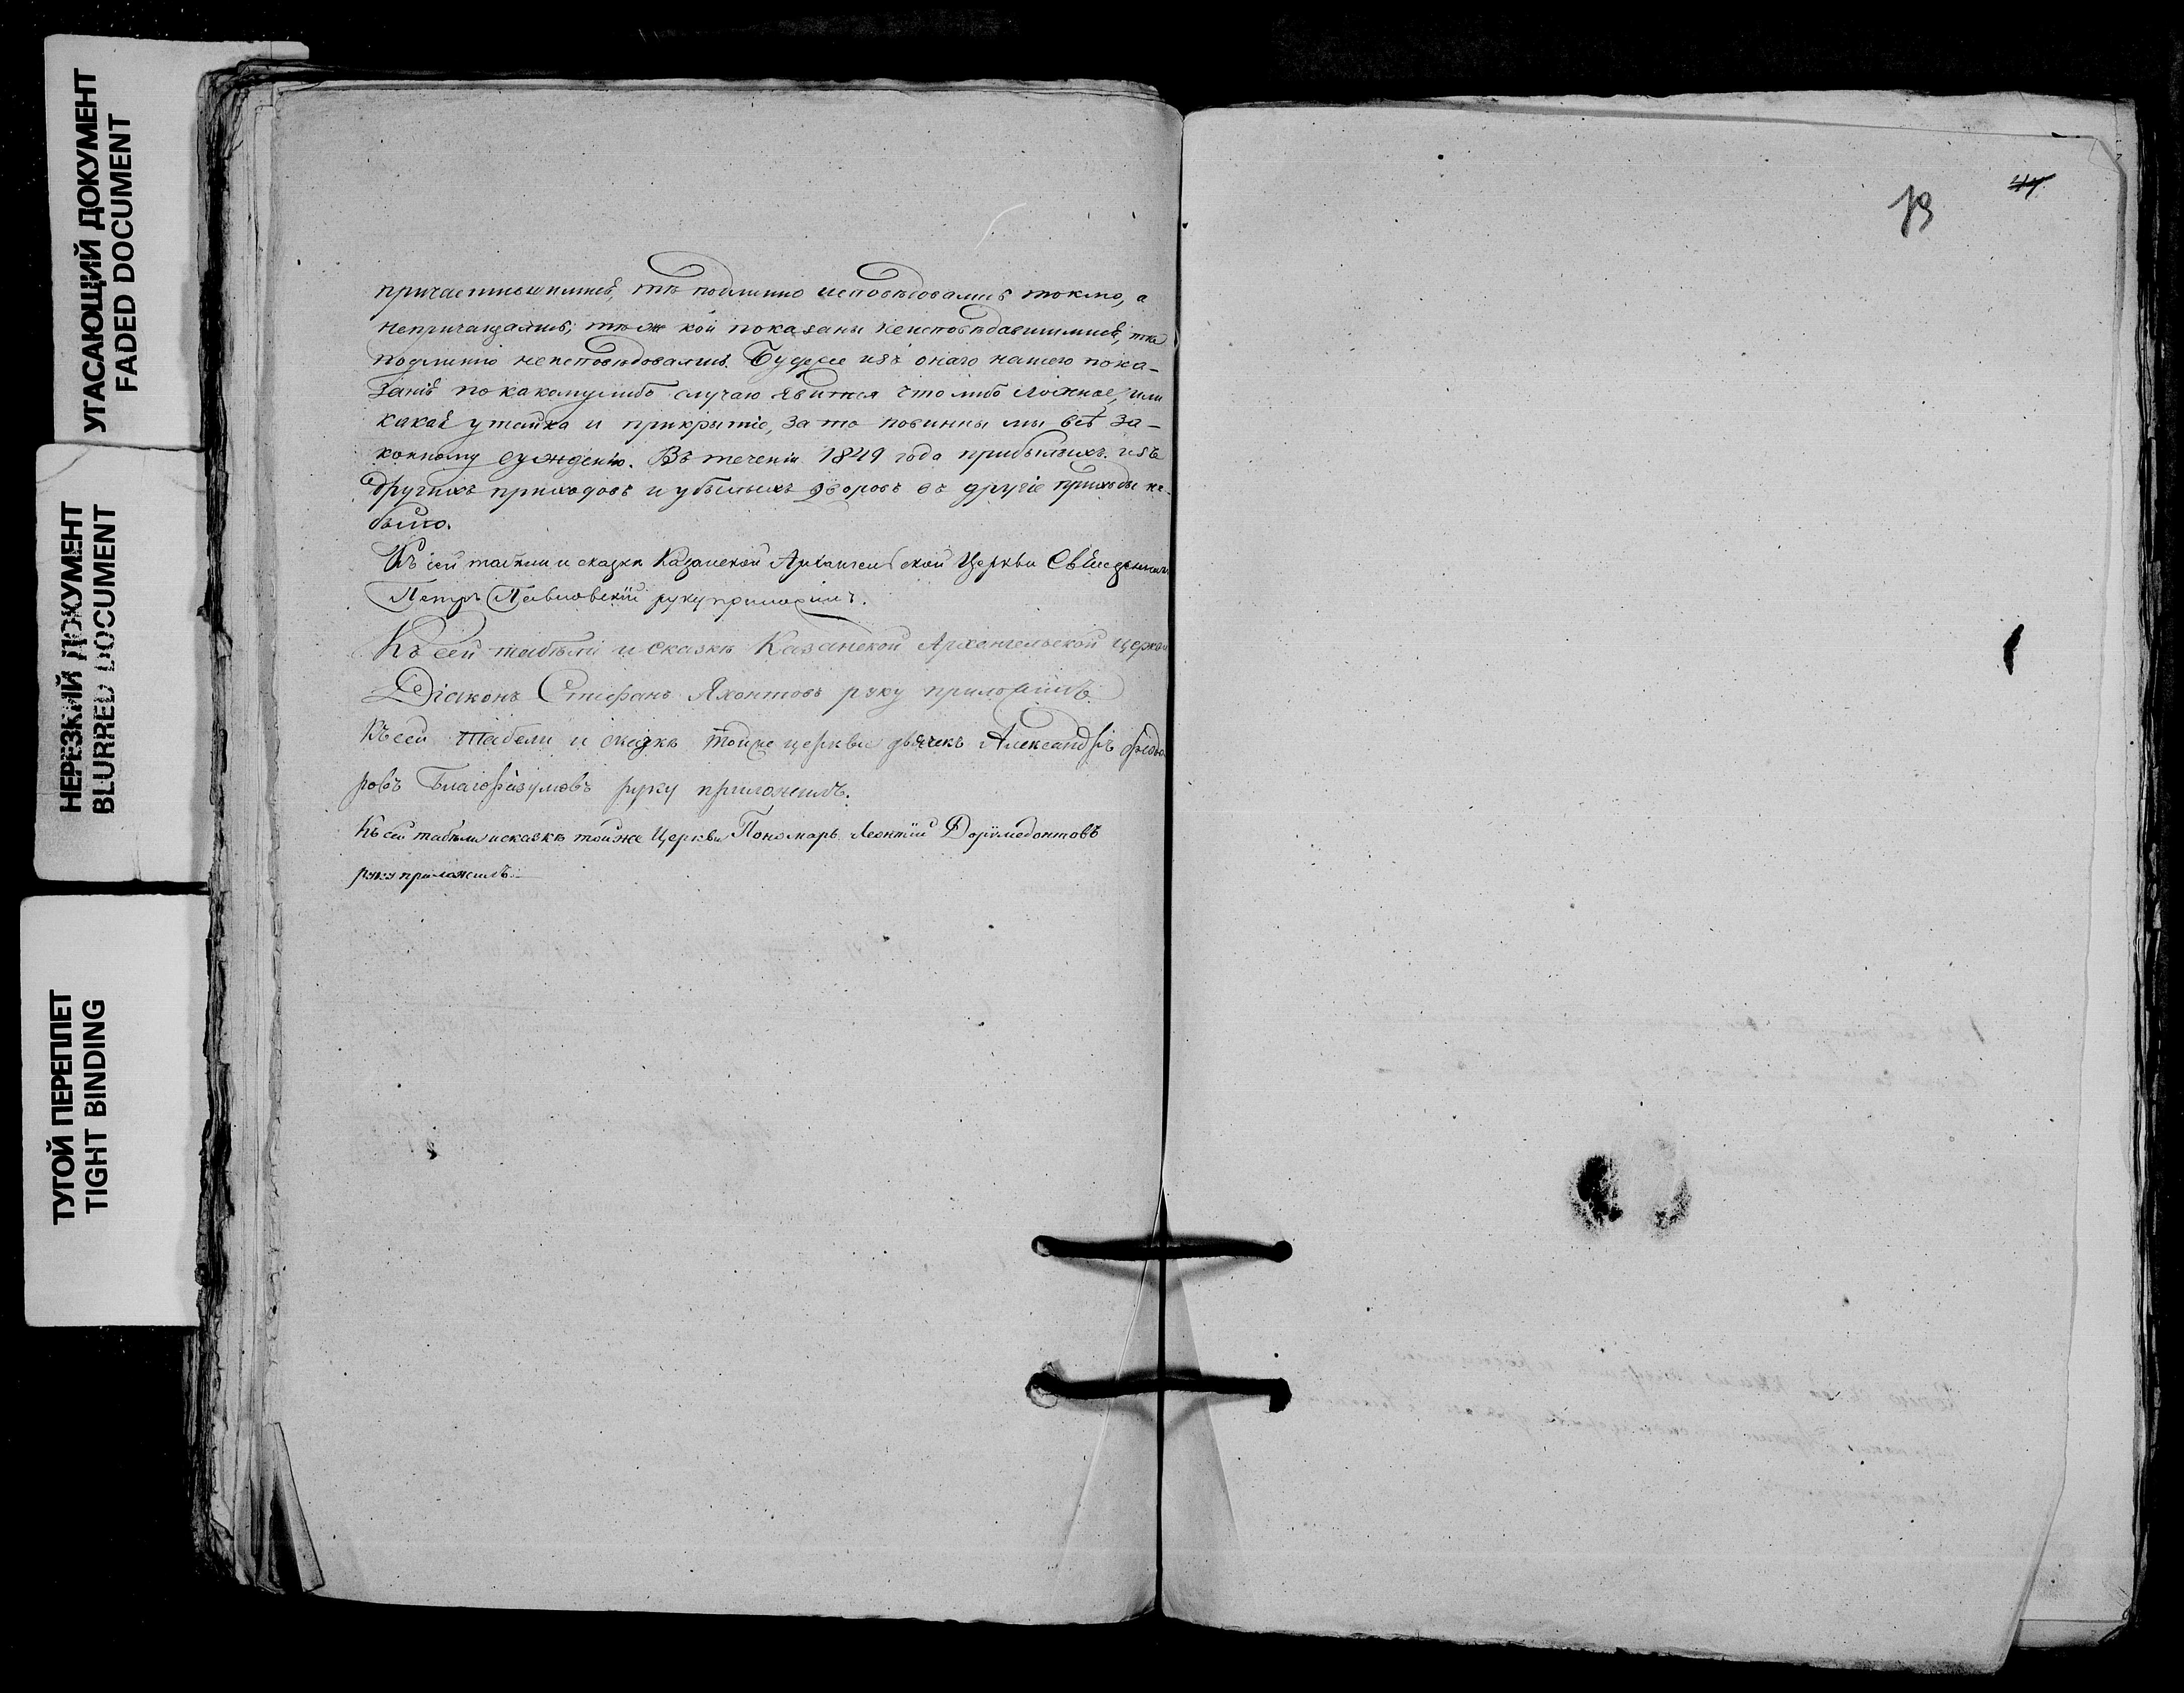 УГАСАЮЩИЙ ДОКУМЕНТ
FADED DOCUMENT
НЕРЕЗКИЙ ДОКУМЕНТ
BLURRED DOCUMENT
ТУГОЙ ПЕРЕПЛЕТ
TIGHT BINDING
подлинно исповѣдовались токмо, а
непричащались; кои показаны неисповѣдавшимися, тѣ
подлинно неисповѣдовались. Буде изъ онаго нашего пока-
занія покакомулибо случаю явится что либо ложное, или
какая утайка и прикрытіе, за то повинны мы всѣ за-
конному сужденію. Въ теченіи 1849 года прибылыхъ изъ
другихъ приходовъ и убылыхъ дворовъ въ другіе приходы не-
было.
Къ сей табели и сказкѣ Казанской Архангельской Церкви Священникъ
Петръ Павловскій руку приложилъ.
Къ сей табѣли и сказкѣ Казанской Архангельской церкви
Діаконъ Стефанъ Яхонтовъ руку приложилъ.
Къ сей табели и сказкѣ тойже церкви дьячекъ Александръ Ѳедо
ровъ Благоразумовъ руку приложилъ.
Къ сей табѣли и сказкѣ тойже Церкви Пономарь Леонтій Доримедонтовъ
руку приложилъ.